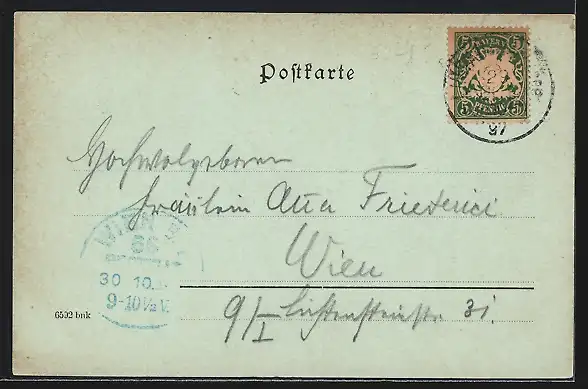 Postkarte
5 BAYERN 5
5 PFENNIG 5
97
Hochwolgeboren
Fräulein Friederici
Wien
9/I Lichtensteinstr 31.
WIEN
66
30 10.
9-10½V.
6592 bnk